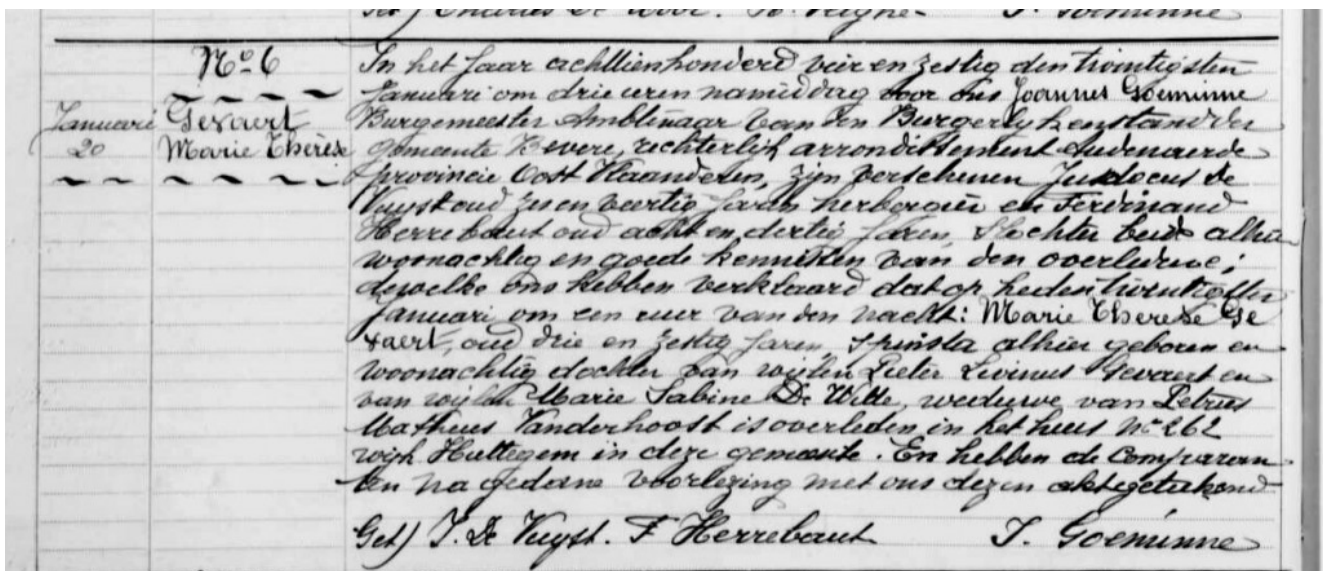 Get) Charles De T. Goeminne
No 6
Januari 20
Gevaert Marie Thérèse
In het Jaar achttienhonderd vier en zestig den twintigsten
Januari om drie uren namiddag voor ons Joannes Goeminne
Burgemeester Ambtenaar van den Burgerlyken stand der
gemeente Bevere, rechterlijk arrondissement Audenaerde
provincie Oost Vlaanderen, zijn verschenen Judocus de
Vuyst oud zes en veertig Jaren herbergier en Ferdinand
Herrebaut oud acht en dertig Jaren, slachter beide alhier
woonachtig en goede kennissen van den overledene;
dewelke ons hebben verklaard dat op heden twintigsten
Januari om een uur van den nacht: Marie Therese Ge
vaert, oud drie en zestig Jaren, spinster alhier geboren en
woonachtig dochter van wijlen Pieter Livinus Gevaert en
van wijlen Marie Sabine De Witte, weduwe van Petrus
Matheus Vanderhoost is overleden in het huis No 262
wijk Huttegem in deze gemeente. En hebben de Comparan
ten na gedane voorlezing met ons dezen akt geteekend
Get) J. De Vuyst. F Herrebaut J. Goeminne